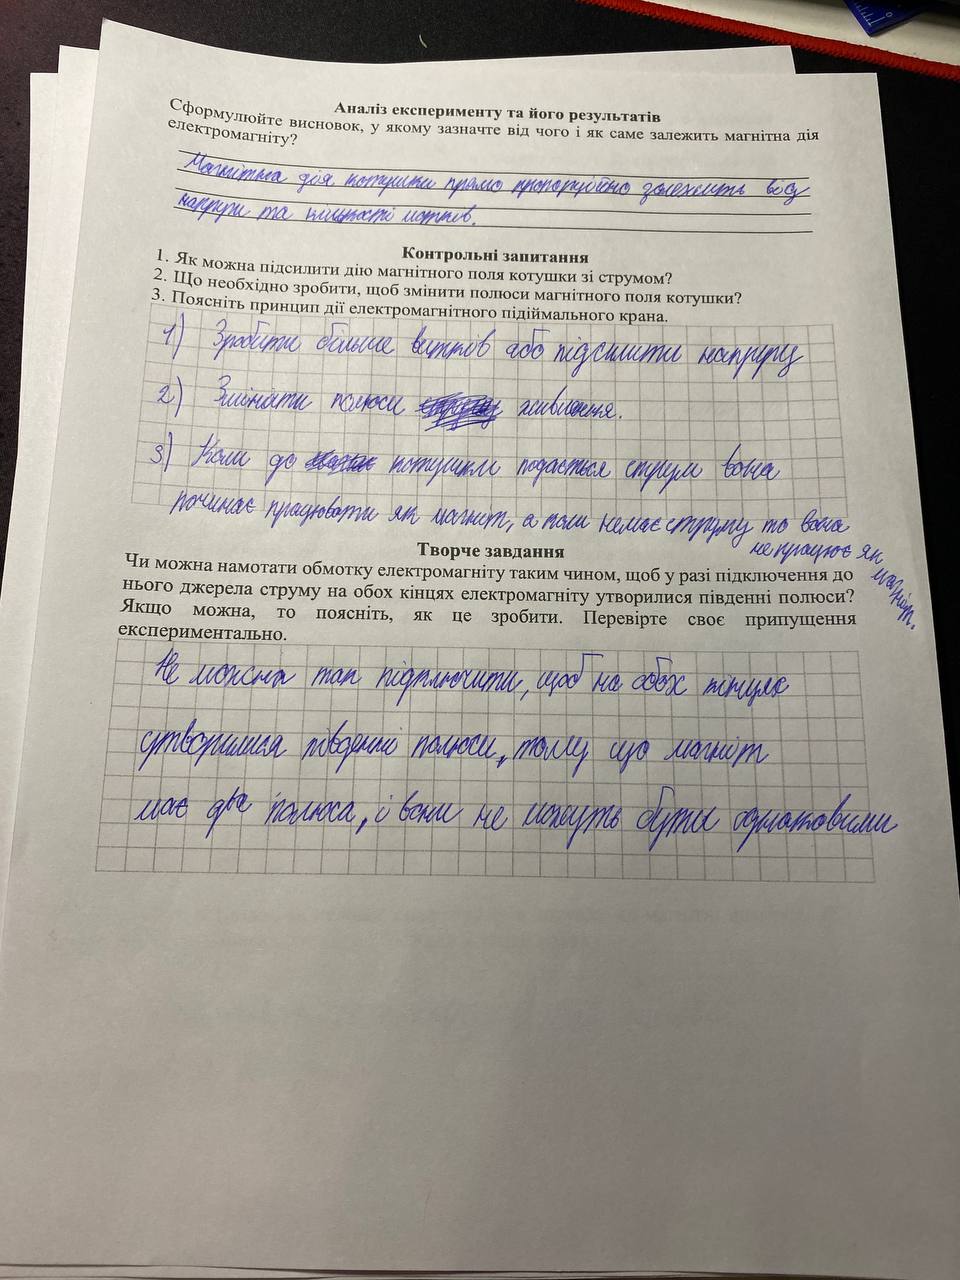 Аналіз експерименту та його результатів
Сформулюйте висновок, у якому зазначте від чого і як саме залежить магнітна дія
електромагніту?
Магнітна дія котушки прямо пропорційно залежить від
напруги та кількості витків.
Контрольні запитання
1. Як можна підсилити дію магнітного поля котушки зі струмом?
2. Що необхідно зробити, щоб змінити полюси магнітного поля котушки?
3. Поясніть принцип дії електромагнітного підіймального крана.
1) Зробити більше витків або підсилити напругу
2) Змінити полюси живлення.
3) Коли до котушки подається струм вона
починає працювати як магніт, а коли немає струму то вона
не працює як
магніт.
Творче завдання
Чи можна намотати обмотку електромагніту таким чином, щоб у разі підключення до
нього джерела струму на обох кінцях електромагніту утворилися південні полюси?
Якщо можна, то поясніть, як це зробити. Перевірте своє припущення
експериментально.
Не можна так підключити, щоб на обох кінцях
утворилися південні полюси, тому що магніт
має два полюса, і вони не можуть бути однаковими